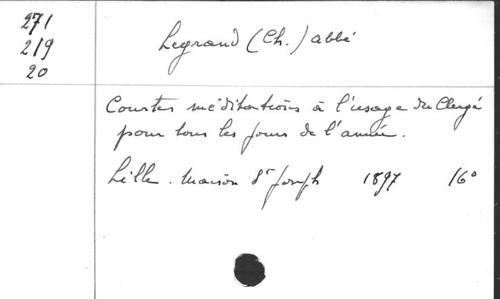 271
219
20
Legrand (Ch.) abbé
Courtes méditations à l'usage du Clergé
pour tous les jours de l'année.
Lille. Maison St Joseph 1897 16°